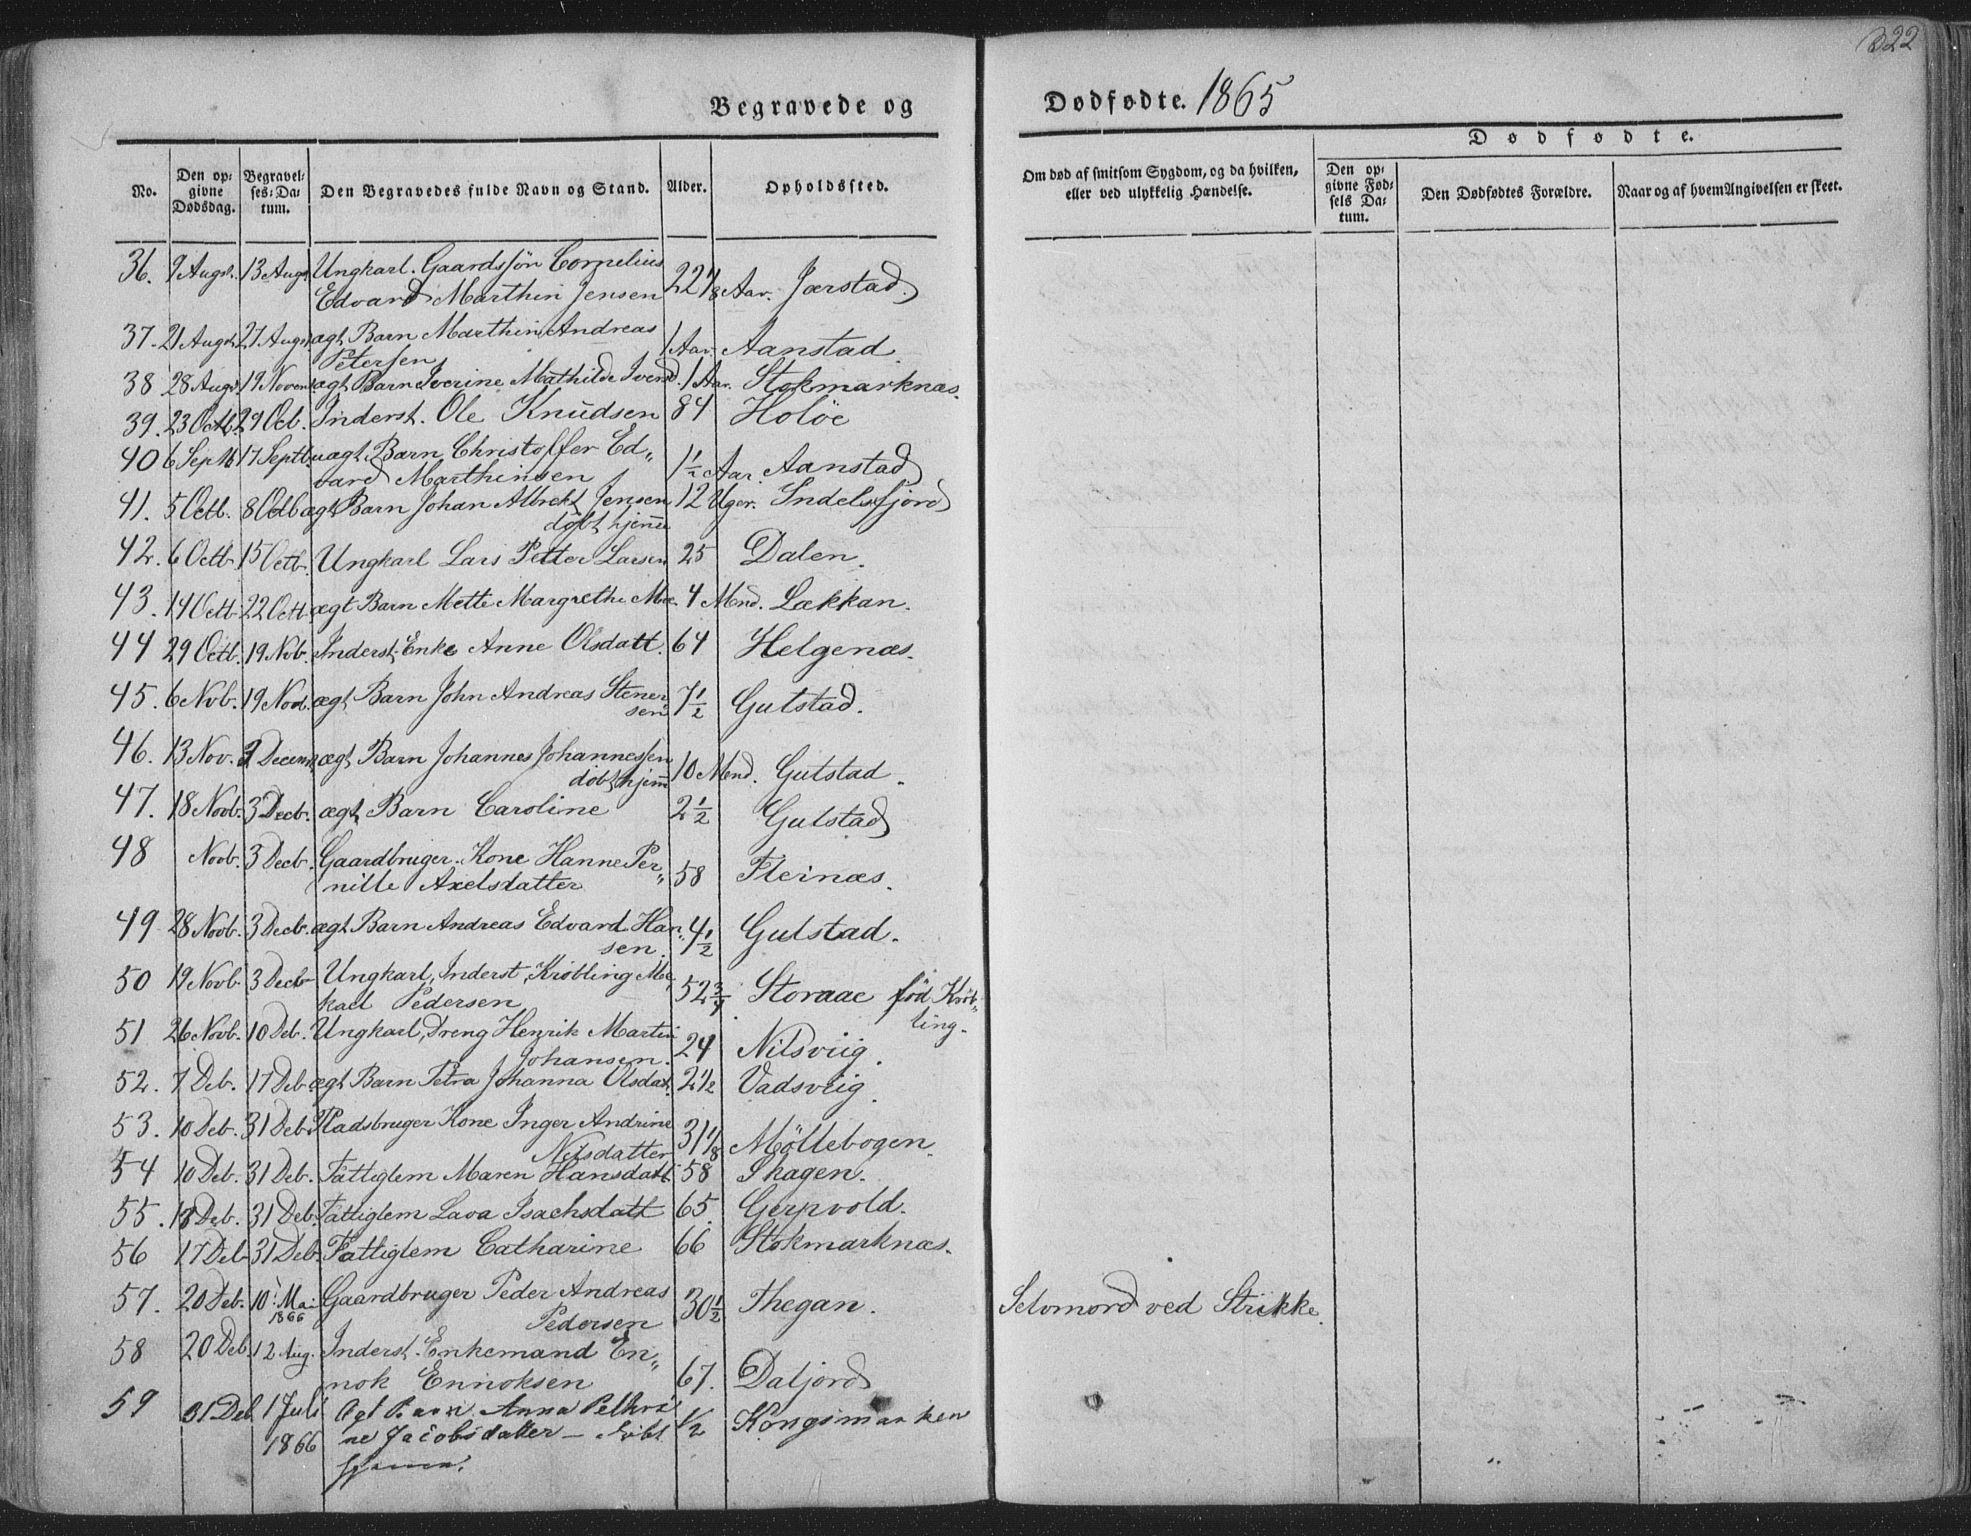 322
Begravede og Dødfødte. 1865
Dødfødte.
No. Den opgivne Dødsdag. Begravelses-Datum. Den Begravedes fulde Navn og Stand. Alder. Opholdssted. Om død af smitsom Sygdom, og da hvilken, eller ved ulykkelig Hændelse. Den opgivne Fødsels Datum. Den Dødfødtes Forældre. Naar og af hvem Angivelsen er skeet.
36. 9 Augst. 13 Augs Ungkarl. Gaardssön Cornelius
Edvard Marthin Jensen 22 1/8 Aar. Jærstad.
37. 21 Augst 27 Augs ægt Barn Marthin Andreas
Petersen 1 Aar. Aanstad.
38 28 Augs 19 Novem ægt Barn Iverine Mathilde Iversd. 1 Aar. Stokmarknæs.
39. 23 Octb. 29 Ocb. Inderst. Ole Knudsen 84 Holöe
40 6 Septb 17 Septb. uægt Barn Christoffer Ed„
vard Marthinsen 1 1/2 Aar. Aanstad
41. 5 Octb. 8 Octb ægt Barn Johan Albrekt Jensen 12 Uger. Indelsfjord
döbt hjem̄e
42. 6 Octb. 15 Octb. Ungkarl Lars Petter Larsen 25 Dalen.
43. 14 Octb. 22 Octb ægt Barn Mette Margrethe 4 Mnd. Lækkan.
44 29 Octb. 19 Nob. Inderst. Enke Anne Olsdatt. 64 Helgenæs.
45. 6 Nob. 19 Novb. ægt Barn John Andreas Stener
sen 7 1/2 Gulstad.
46. 13 Nov. 3 Decemb ægt Barn Johannes Johannessen
döbt hjem̄ 10 Mnd. Gulstad.
47. 18 Novb. 3 Decb. ægt Barn Caroline 2 1/2 Gulstad
48 Novb. 3 Decb. Gaardbruger. Kone Hanne Per„
nille Axelsdatter 58 Fleinæs.
49 28 Novb. 3 Decb. ægt Barn Andreas Edvard Han„
sen. 4 1/2 Gulstad.
50 19 Novb. 3 Decb. Ungkarl, Inderst, Kröbling Mi„
kael Pedersen 52 3/4 Storaae fød Kröb„
ling.
51 26 Novb. 10 Deb. Ungkarl, Dreng Henrik Martin
Johansen. 24 Nilsviig.
52. 7 Deb. 17 Deb ægt Barn Petra Johanna Olsdat. 2 1/2 Vadsviig.
53. 10 Deb. 31 Deb. Pladsbruger Kone Inger Andrine
Nilsdatter 31 1/8 Möllebogen.
54 10 Deb. 31 Deb. Fattiglem Maren Hansdatt 58 Skagen.
55. 18 Deb. 31 Deb. Fattiglem Lava Isachsdatt 65. Gerpvold.
56 17 Deb 31 Deb. Fattiglem Catharine 66 Stokmarknæs.
57. 20 Deb. 10 Mai 1866 Gaardbruger Peder Andreas
Pedersen 30 1/2 Thegan. Selvmord ved Strikke.
58 20 Deb. 12 Aug. Inderst. Enkemand En„
nok Ennoksen 67. Daljord
59 31 Deb 1 Juli 1866 Ægt Barn Anna Pethri
ne Jacobsdatter – döbt
hjemme. 1/2 Kongsmarken